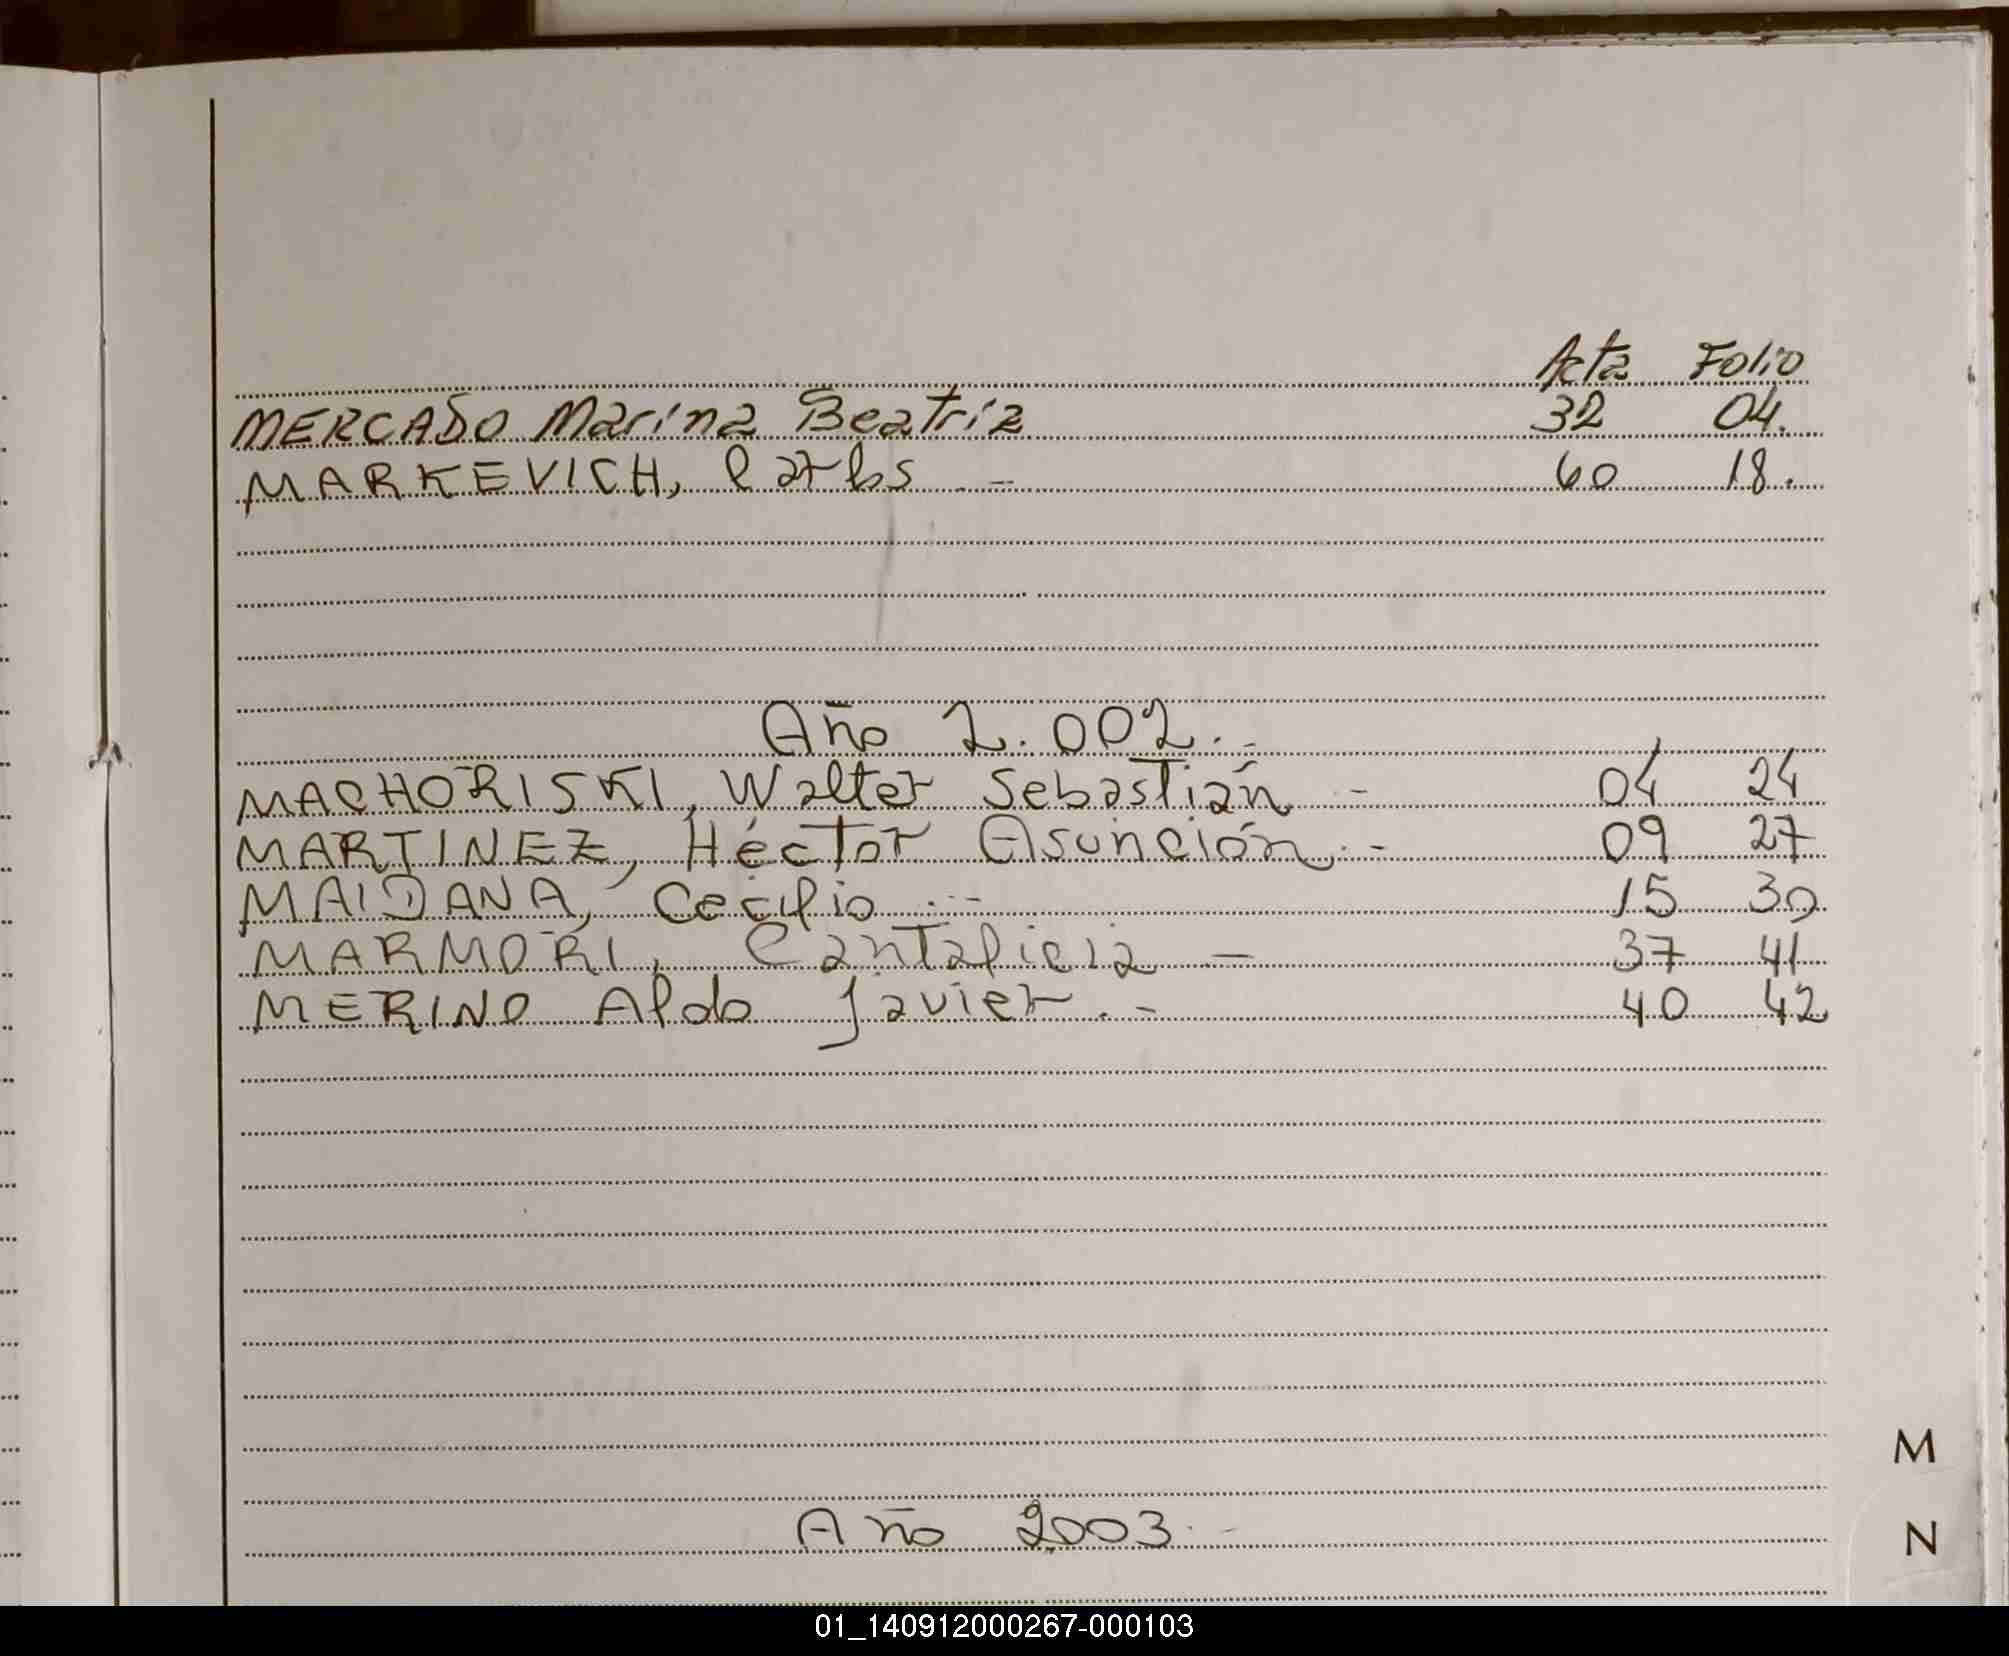 Acta Folio
MERCADO Marina Beatriz 32 04.
MARKEVICH, Carlos .- 60 18.
Año 2.002.-
MACHORISKI, Walter Sebastián - 04 24
MARTINEZ, Héctor Asunción.- 09 27
MAIDANA, Cecilio .- 15 30
MARMORI, Cantalicia - 37 41
MERINO Aldo Javier.- 40 42
M
N
Año 2003.-
01_140912000267-000103